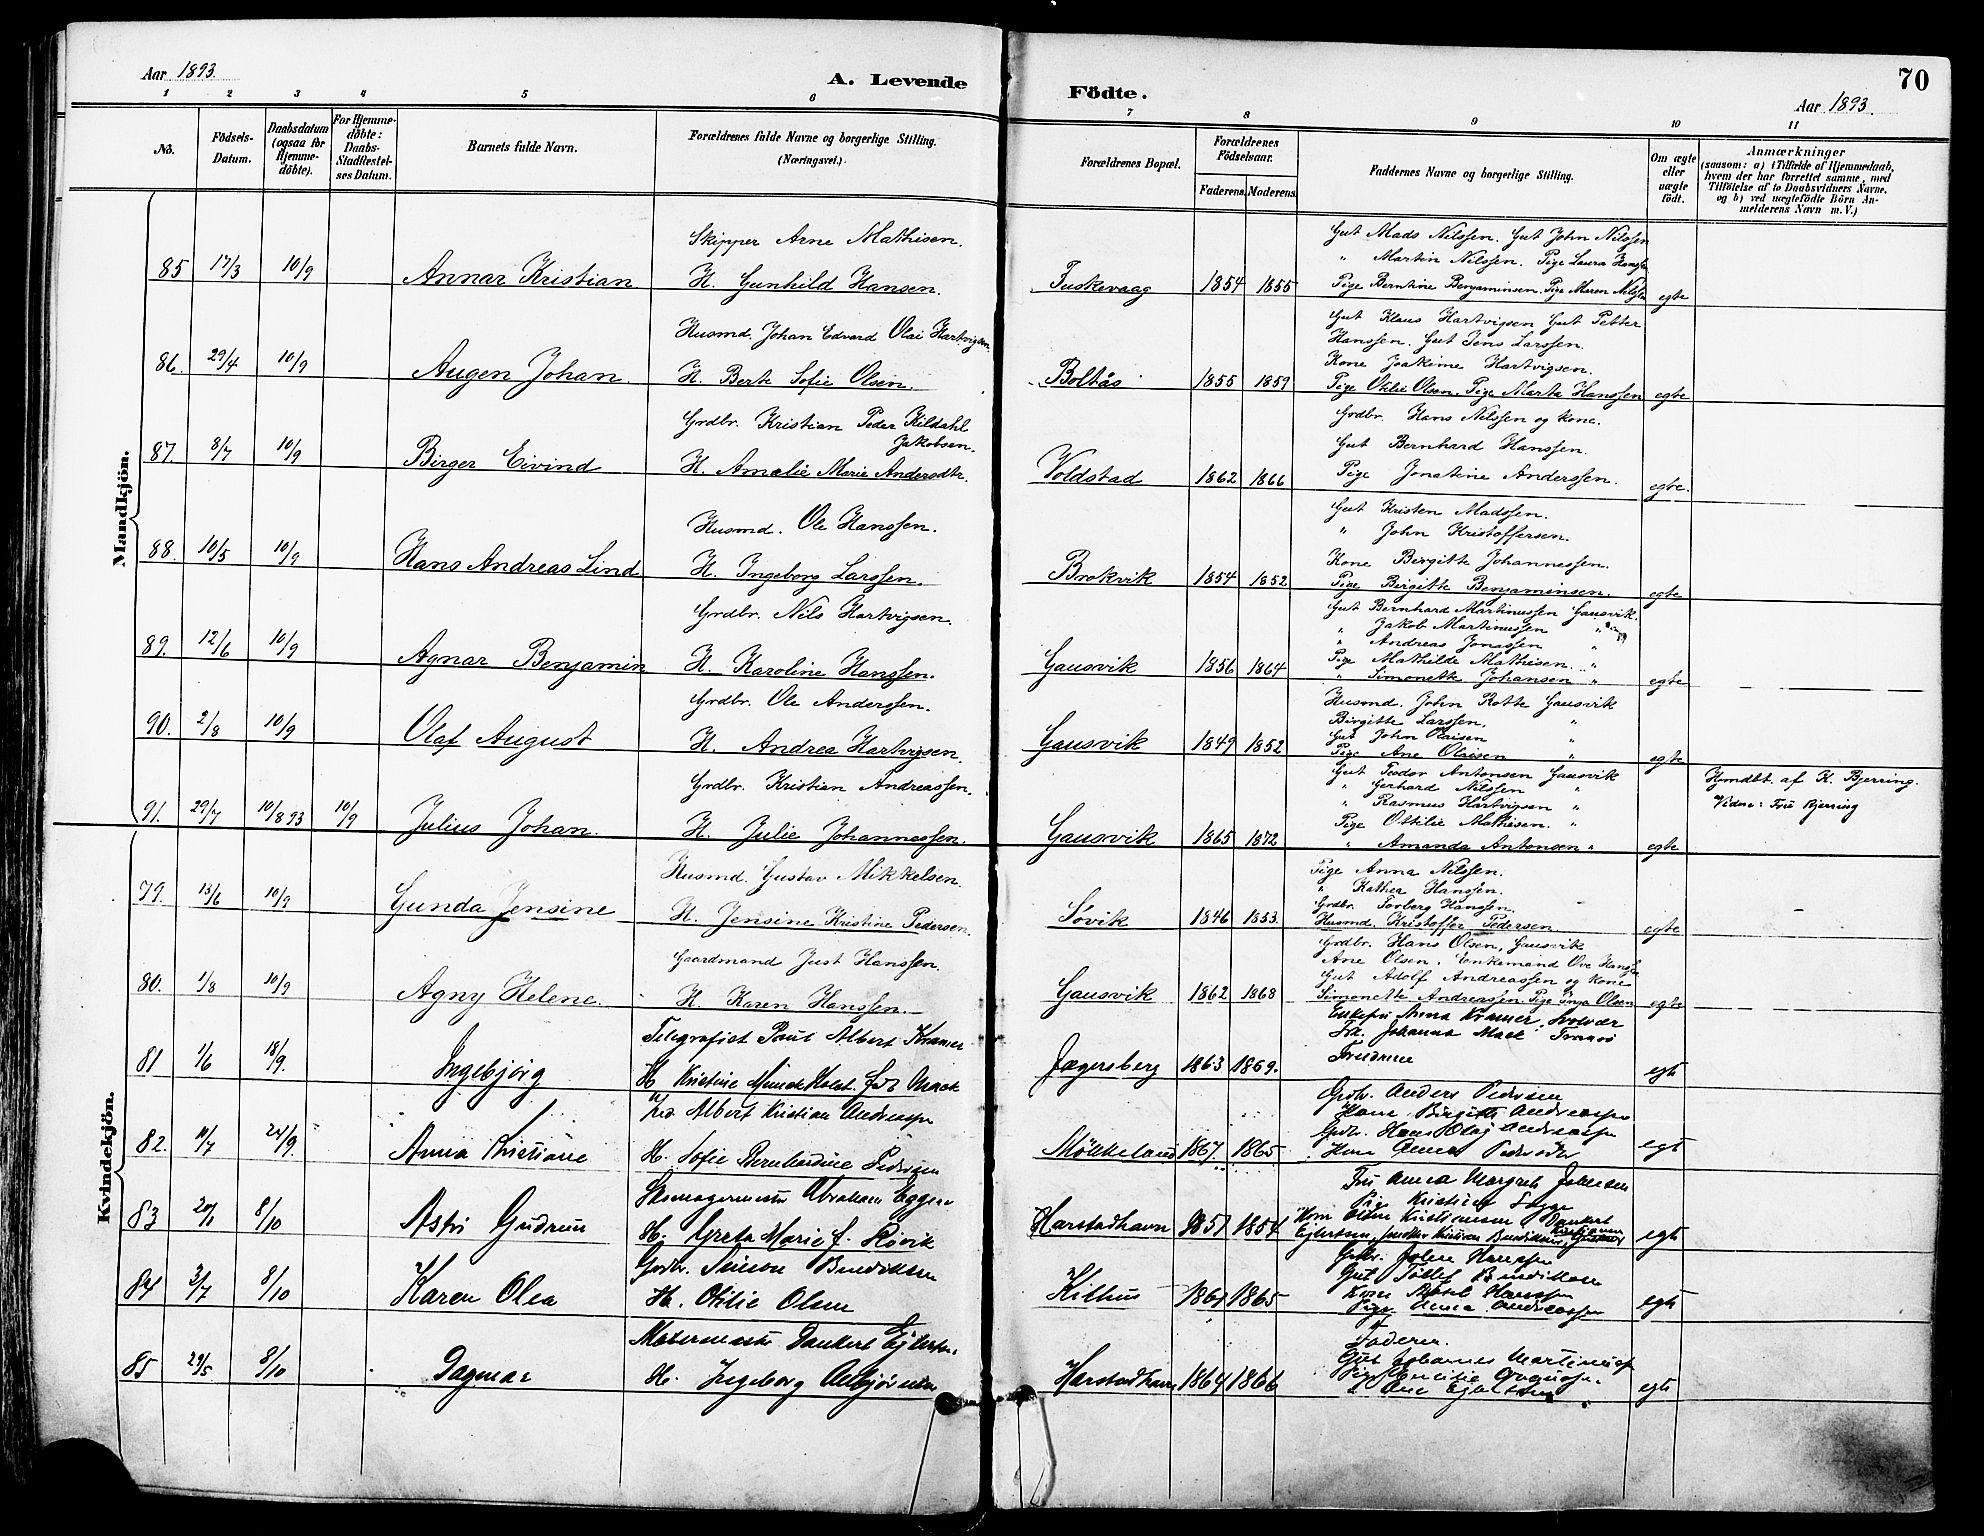 Aar 1893.
A. Levende
Födte.
70
Aar 1893
1 2 3 4 5 6 7 8 9 10 11
No.
Födsels-
Datum.
Daabsdatum
(ogsaa for
Hjemme-
döbte).
For Hjemme-
döbte:
Daabs-
Stadfæstel-
ses Datum.
Barnets fulde Navn.
Forældrenes fulde Navne og borgerlige Stilling.
(Næringsvei.)
Forældrenes Bopæl.
Forældrenes
Födselsaar.
Faderens. Moderens.
Faddernes Navne og borgerlige Stilling.
Om ægte
eller
uægte
födt.
Anmærkninger
(saasom: a) i Tilfælde af Hjemmedaab,
hvem der har forrettet samme, med
Tilföielse af to Daabsvidners Navne.
og b) ved uægtefödte Börn An-
melderens Navn m. V.)
Mandkjön.
85 17/3 10/9 Annar Kristian
Skipper Arne Mathisen.
H. Gunhild Hansen.
Fuskevaag 1854 1855
Gut Mads Nilssen. Gut John Nilssen
" Martin Nilssen. Pige Laura Hanssen
Pige Berntine Benjaminsen. Pige Maren Nilssen
egte
86. 29/4 10/9 Augen Johan.
Husmd. Johan Edvard Olai Hartvigsen.
H. Berte Sofie Olsen.
Boltås 1855 1859
Gut Klaus Hartvigsen Gut Petter
Hanssen. Gut Jens Larssen.
Kone Joakime Hartvigsen.
Pige Otilie Olsen. Pige Marta Hanssen
egte
87. 8/7 10/9 Birger Eivind
Grdbr. Kristian Peder Kildahl
Jakobsen.
H. Amalie Marie Andersdtr.
Voldstad 1862 1866
Grdbr. Hans Nilssen og kone.
Gut Bernhard Hanssen.
Pige Jonatine Anderssen.
egte.
88. 10/5 10/9 Hans Andreas Lind
Husmd. Ole Hanssen.
H. Ingeborg Larssen.
Brokvik 1854 1852
Gut Kristen Madssen.
" John Kristoffersen.
Kone Birgitte Johannessen.
Pige Birgitte Benjaminsen.
egte
89. 12/6 10/9 Agnar Benjamin
Grdbr. Nils Hartvigsen.
H. Karoline Hanssen.
Gausvik 1856 1864
Gut Bernhard Martinussen Gausvik.
" Jakob Martinussen "
" Andreas Jonassen "
Pige Mathilde Mathisen. "
" Simonette Johansen "
egte
90. 2/8 10/9 Olaf August
Grdbr. Ole Anderssen.
H. Andrea Hartvigsen.
Gausvik 1849 1852
Husmd. John Rotte Gausvik
Birgitte Larssen. "
Gut John Olaisen "
Pige Ane Olaisen "
egte
91. 29/7 10/8 93 10/9 Julius Johan.
Grdbr. Kristian Andreassen.
H. Julie Johannessen.
Gausvik 1865 1872
Gut Teodor Antonsen Gausvik
" Gerhard Nilssen "
" Rasmus Hartvigsen "
Pige Ottilie Mathisen. "
" Amanda Antonsen "
egte
Hjmdbt. af K. Bjerring.
Vidne: Fru Bjerring
Kvindekjön.
79. 13/6 10/9 Gunda Jensine
Husmd. Gustav Mikkelsen.
H. Jensine Kristine Pedersen.
Sövik 1846 1853.
Pige Anna Nilssen.
" Kathea Hanssen.
Grdbr. Torberg Hanssen.
Husmd. Kristoffer Pedersen
egte
80. 1/8 10/9 Agny Helene.
Gaardmand Just Hanssen.
H. Karen Hanssen.
Gausvik 1862 1868
Grdbr. Hans Olsen, Gausvik
Ane Olsen. Enkemand Ove Hanssen
Gut Adolf Andreassen og kone
Simonette Andreassen. Pige Inga Olsen
egte
81 1/6 18/9. Ingebjörg
Telegrafist Paul Albert Kramer
H. Kristine Munch Holst födt Mack
Jægersberg 1863 1869.
Enkefru Anna Kramer, Svolvær
Frk. Johanna Mack Tromsö
Forældrene
egt
82. 10/7 24/9. Anna Kristiane
Albert Kristian Andreassen
H. Sofie Bernhardine Pedersen
Mökkeland 1867. 1865
Grdbr. Anders Pedersen
Kone Birgitte Andreassen
Grdbr. Hans Olaj Andreassen
Kone Anna Pedersdtr
egt
83 20/1 8/10 Astri Gudrun
Skomagermester Abraham Eggen
H. Greta Marie f. Rövik
Harstadhavn 1851 1854
Fru Anna Margrete Johnsen
Pige Kristine
Kristiansen Dankert
Ejlertsen,
egt
84 2/7 8/10 Karen Olea
Grdbr. Simon Bendiksen
H. Otilie Olsen
Kilhus 1861 1865
Grdbr. Johan Hanssen
Gut Tollef Bendiksen
Hanssen
Pige Anna Andreassen
egt
85 29/5 8/10 Dagmar
Malermester Dankert Ejlertsen
H. Ingeborg Asbjörnsen
Harstadhavn 1864 1866
Faderen.
Gut Johannes Martinussen
Pige
" Ane Ejlertsen
egt